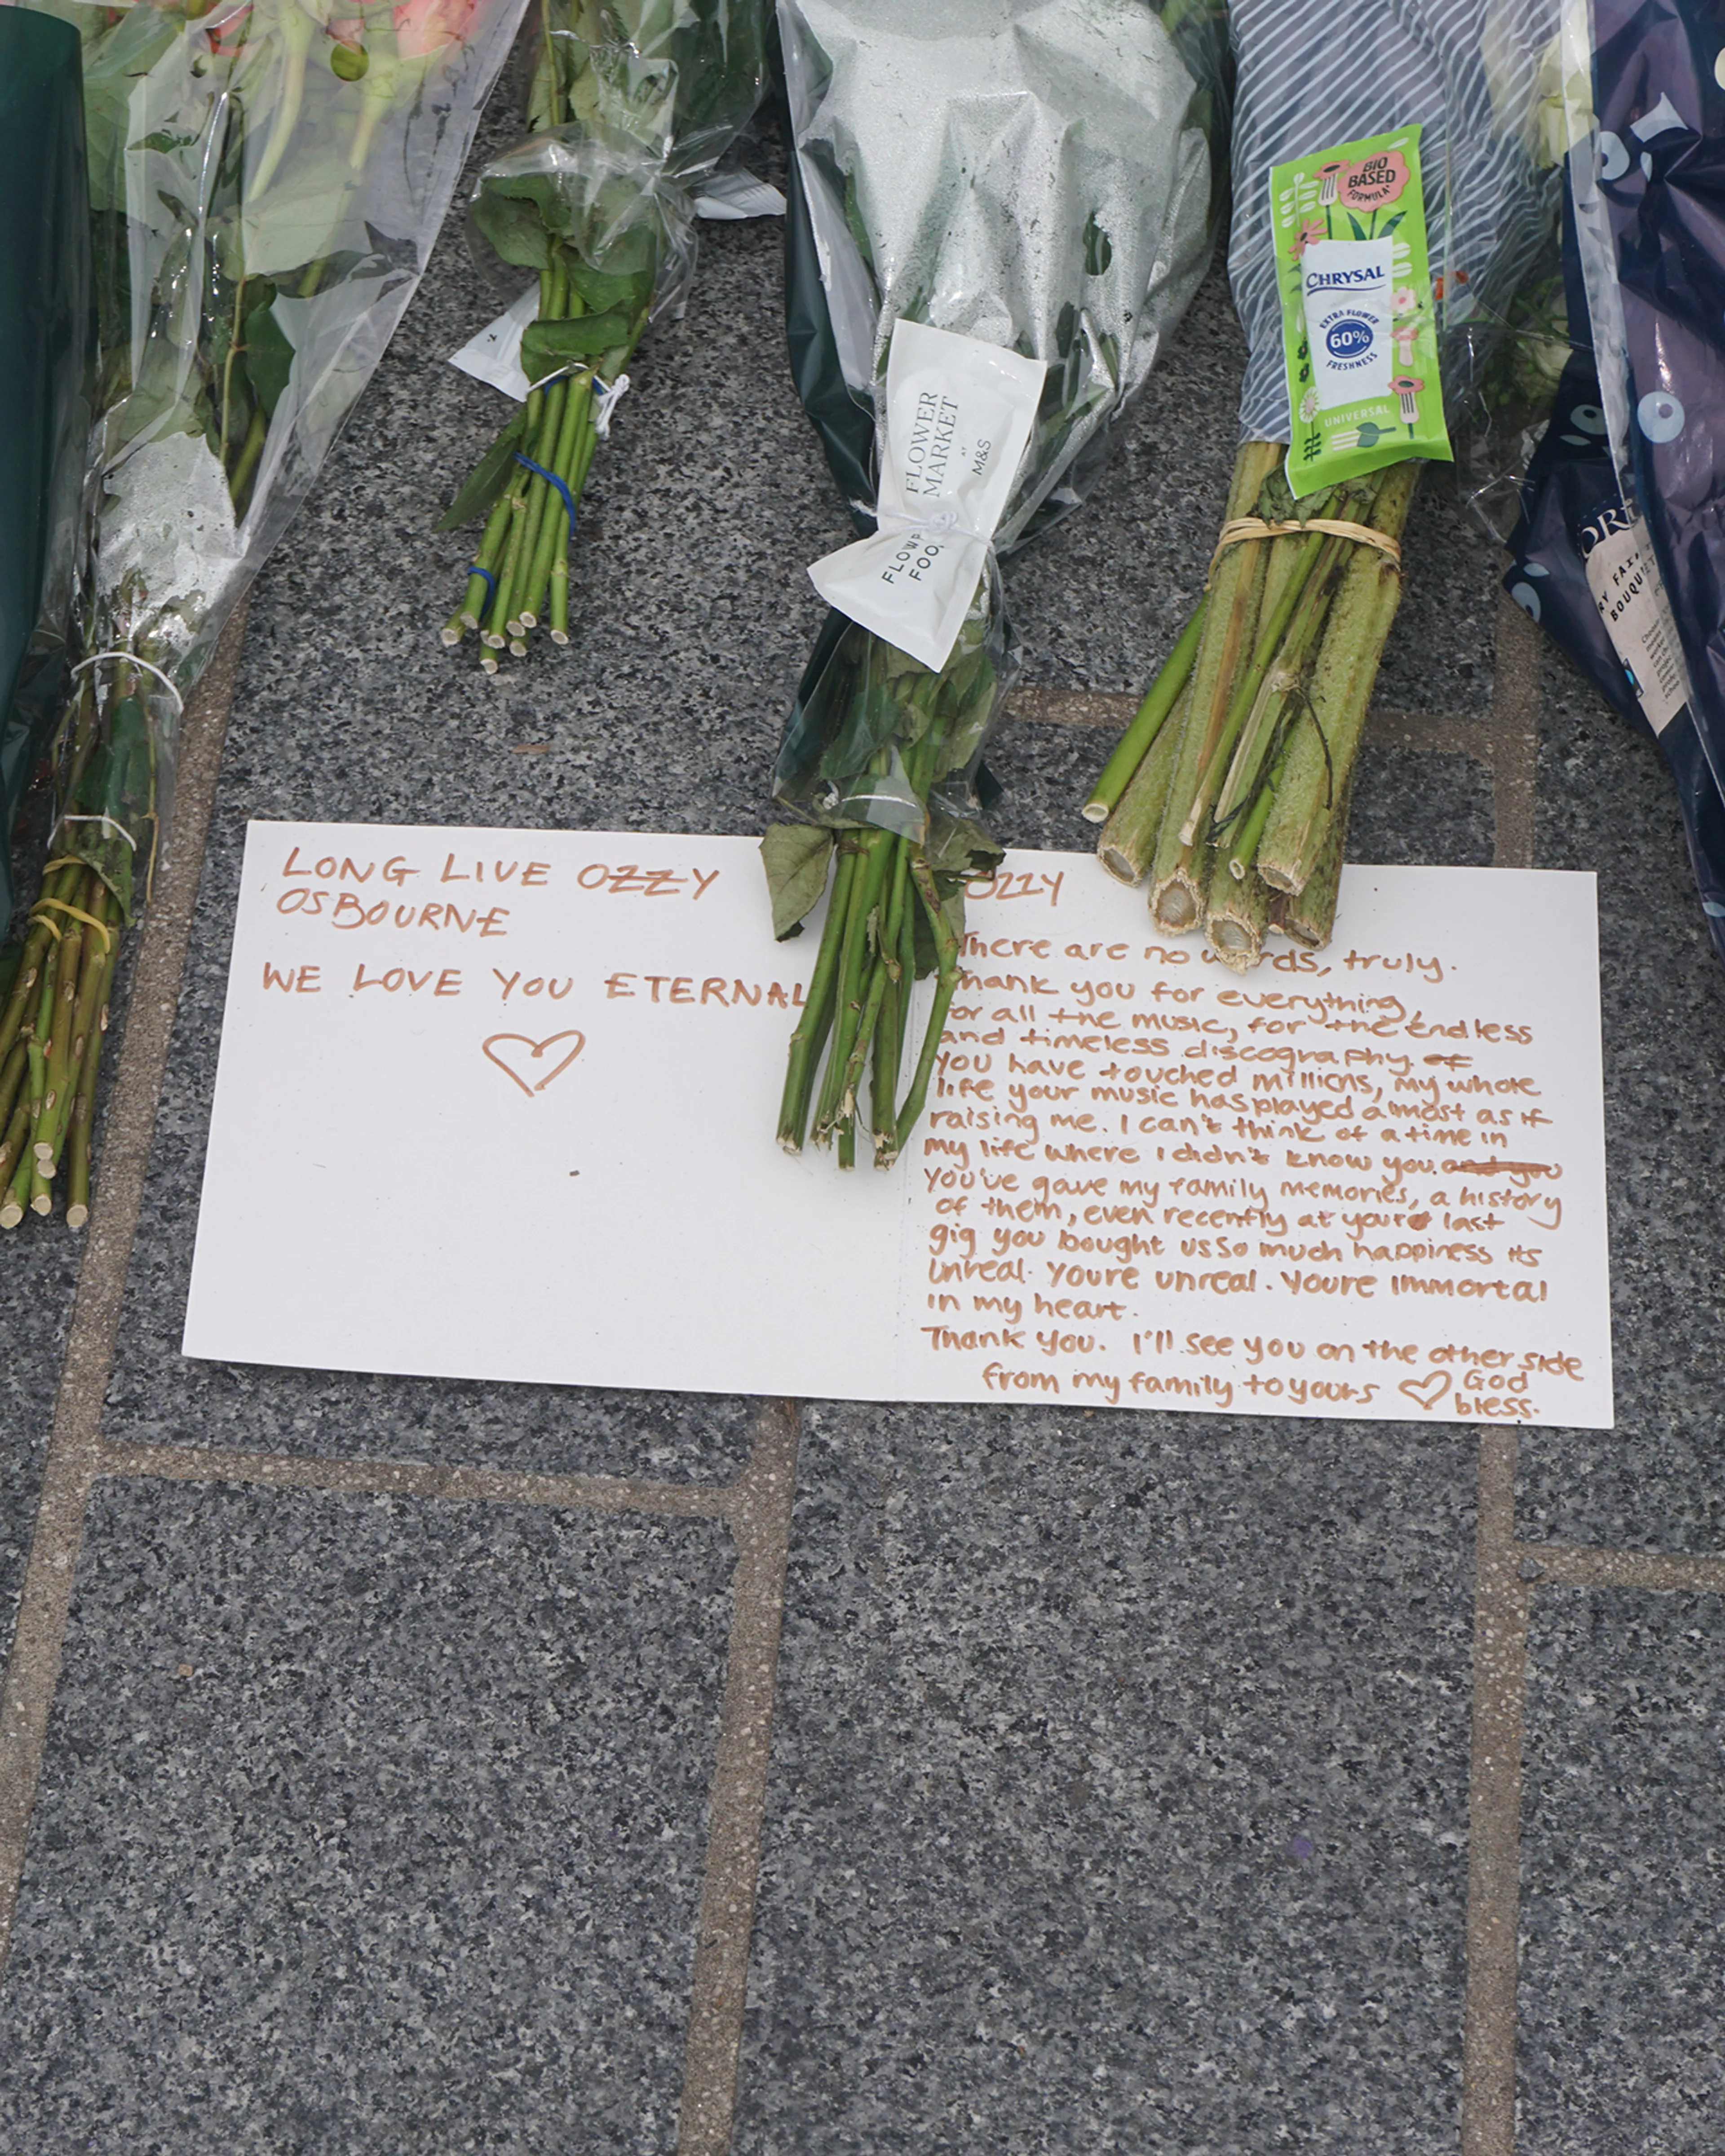 BIO
BASED
FORMULA*
CHRYSAL
EXTRA FLOWER
60%
FRESHNESS
UNIVERSAL
FLOWER
MARKET
AT
M&S
FLOW
FOO
BOUQU
LONG LIVE OZZY
OSBOURNE
WE LOVE YOU ETERNAL
OZZY
There are no words, truly.
Thank you for everything,
for all the music, for the endless
and timeless discography. of
you have touched millions, my whole
life your music has played almost as if
raising me. I can't think of a time in
my life where I didn't know you. and you
You've gave my family memories, a history
of them, even recently at your last
gig you bought us so much happiness its
unreal. Youre unreal. Youre immortal
in my heart.
Thank you. I'll see you on the other side
from my family to yours God
bless.